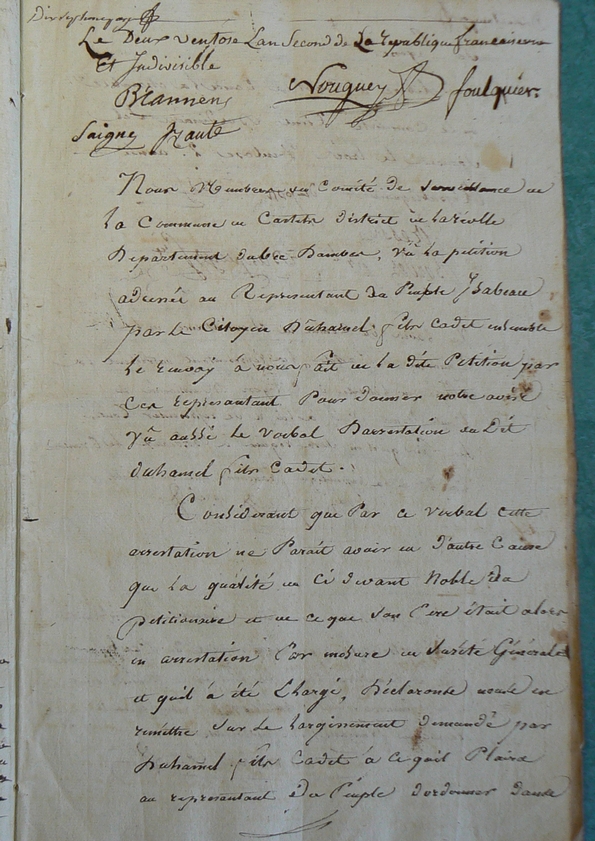 Le Deux ventose Lan Second de La republique francaise une
Et Indivisible
Biannens Nouguey foulquier.
Saigne
Nous Membres du Comité de Surveillance de
La Commune de District de Lareolle
Departement dubec Dambes, vû La petition
adressée au Representant du Peuple Isabeau
par Le Citoyen Duhamel fils Cadet ensemble
Le renvoy à nous fait de La dite Petition par
Ces representant Pour donner notre avis
vû aussi Le Verbal Darrestation du Dit
duhamel fils Cadet.
Considerant que Par ce verbal cette
arrestation ne Parait avoir eu d'autre Cause
que La qualité de Ci divant Noble du
petitionaire et de ce que Son Pere était alors
en arrestation Par mesure de Sureté Générale
et quil à été Elargé, Déclarons nous en
remettre Sur Le Largissement demandé par
Duhamel fils Cadet à ce quil Plaira
au representant du Peuple dordonner